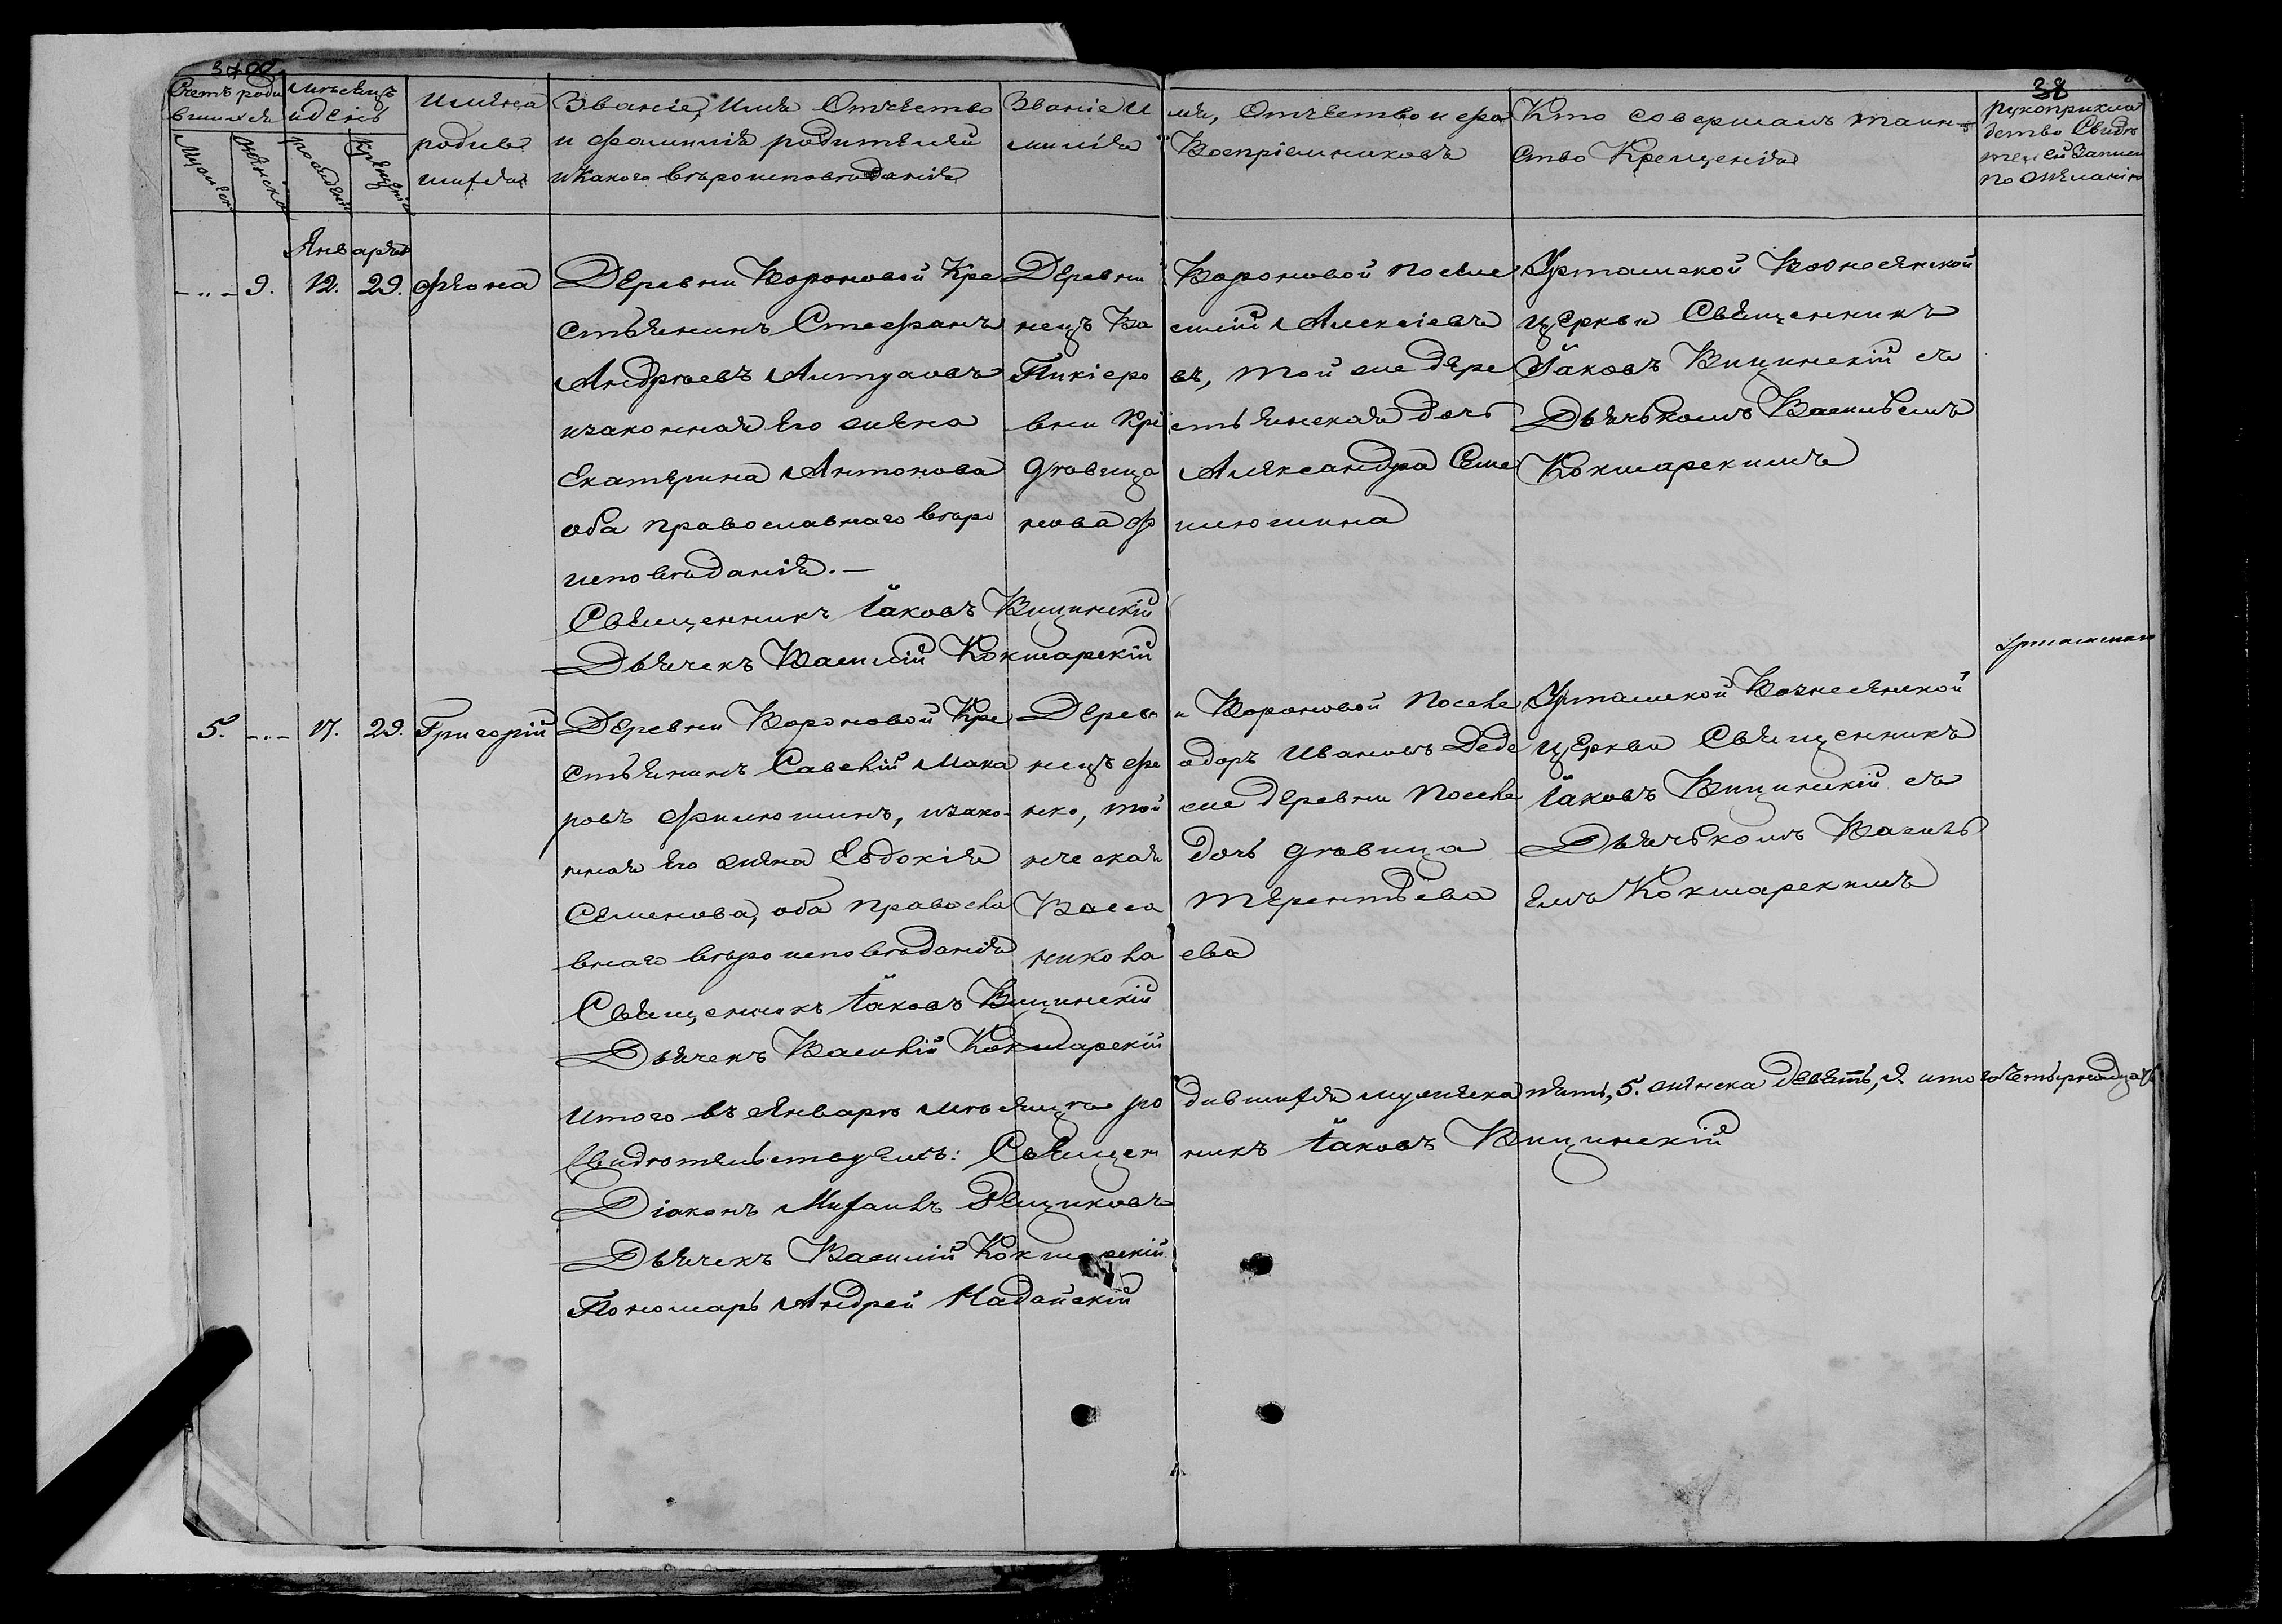 38
Счетъ роди
вшихся
Мужеска
Женска
Мѣсяцъ
и день
рожденія
Крещенія
Имена
родив
шихся
Званіе, Имя Отчество
и Фамилія родителей
и Какого вѣроисповѣданія
Званіе и имя, Отчество и фа
милія Воспріемниковъ
Кто совершалъ таин-
ство Крещенія
рукоприкла
дство Свидѣ
телей Записи
по желанію
Январь
9. 12. 29. Фіона
Деревни Вороновой Кре
стьянинъ Стефанъ
Андреевъ
изаконная Его жена
Екатерина Антонова
оба православнаго вѣро
исповѣданія.—
Священникъ Іаковъ Вицинскій
Дьячекъ Василій Кокшарскій
Деревни Вороновой поселе
нецъ Василій Алексіевъ
Пикіеровъ, той же дере
вни Крестьянская дочь
дѣвица Александра Семе
нова Филюшина
Урташской Вознесенской
церкви Священникъ
Іаковъ Вицинскій съ
Дьячькомъ Васильемъ
Кокшарскимъ
5. 17. 29. Григорій
Деревни Вороновой Кре
стьянинъ Савелій Мака
ровъ Филюшинъ, изако
нная Его жена Евдокія
Семенова, оба Правосла
внаго вѣроисповѣданія
Священникъ Іаковъ Вицинскій
Дьячекъ Василій Кокшарскій
Деревни Вороновой Поселе
нецъ Феодоръ Ивановъ Деде
нко, той же деревни Поселе
нческая дочь дѣвица
Васса Терентьева
николаева
Урташской Вознесенской
церкви Священникъ
Іаковъ Вицинскій съ
Дьячькомъ Василь
емъ Кокшарскимъ
Итого въ Январѣ мѣсяцѣ родившихся мужеска пять, 5. женска девять, 9. итого четырнадцать
Свидѣтельствуемъ: Священникъ Іаковъ Вицинскій
Діаконъ Михаилъ
Дьячекъ Василій Кокшарскій
Пономарь Андрей Надайскій